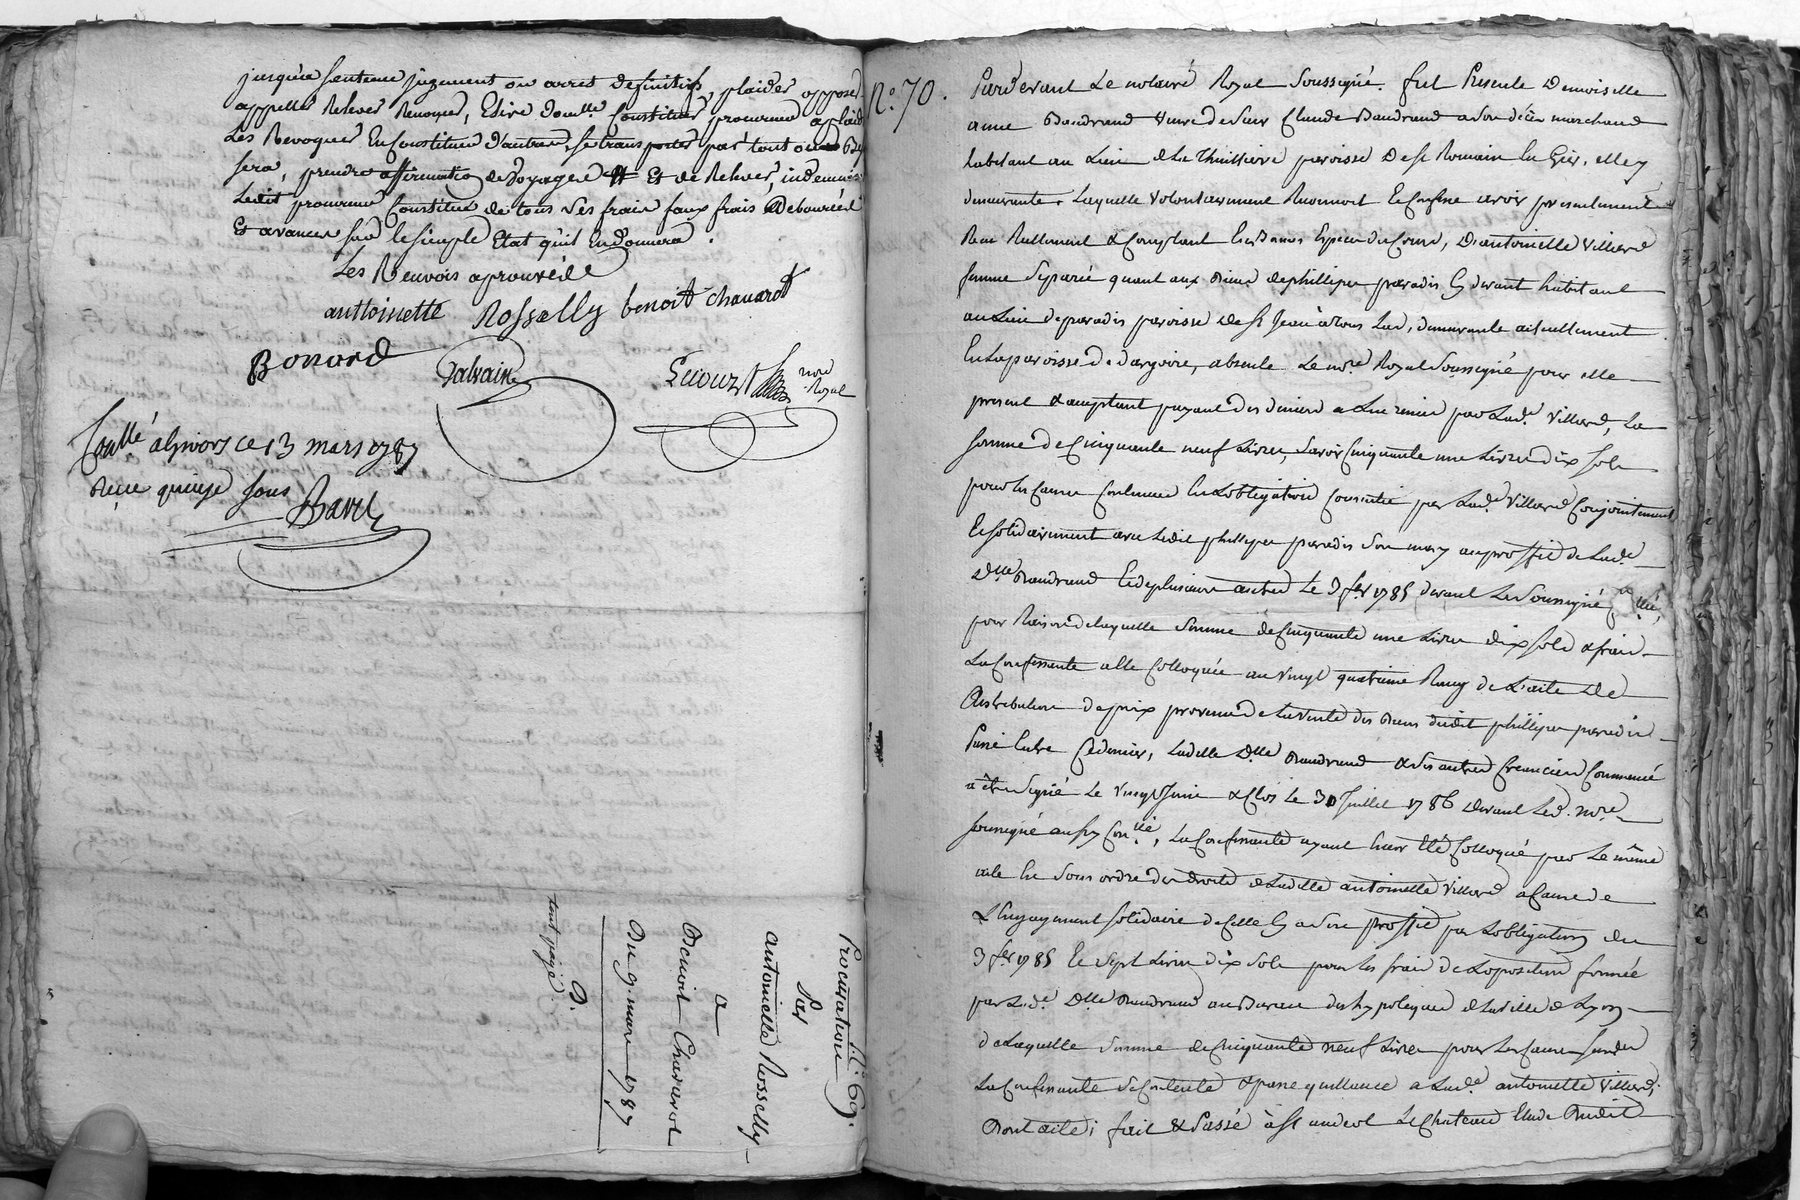 jusqu'a sentence jugement ou arret definitifs, plaider opposer
appeller Relever Renoncer, Elire domlle Constituer procureur a plaid
Les Revoquer En Constituer d'autres, se transporter par tout ou Bes
sera, prendre affirmation de voyage Et de Relever, indemniser
Ledit procureur Constitué de tous ses frais faux frais Debourcéd
Et avances sur le simple Etat qu'il En donnera.
Les Renvois aprouvéd
anttoinette Rossetty benoit chavarot
Bonard
Dalvaine
notre
Royal
Conllé a givors ce 13 mars 1787
Reçu quinze sous
Bavet
N.° 69.
Procuration
Par
antoinette Rosselly
a
Benoit Chavarot
Du 9. mars 1787
D.
tout payé
N.° 70.
Pardevant Le notaire Royal Soussigné. fut Presente Demoiselle
anne Baudrand veuve de Sieur Claude Baudrand a son décès marchand
habitant au Lieu de La Thuillière paroisse De St Romain En Gier, elle y
demeurante. Laquelle volontairement Reconnoit Et Confesse avoir presentement
Reçu Reellement & Comptant En Bonnes Especes du Cours, D'antoinette Villard
femme Separée quant aux Biens de phillipe paradis Cy devant habitant
au Lieu de paradis paroisse de St Jean a Tous Las, demeurante actuellement
En La paroisse de dargoire, absente Le nore Royal Soussigné pour elle
present & acceptant payant des deniers a Lui remis par Lade Villard, La
somme de Cinquante neuf Livres, Savoir Cinquante une Livres dix sols
pour les Causes Contenues En L'obligation Consentie par Lade Villard Conjointement
Et Solidairement avec Ledit phillipe paradis Son mary au proffit de Lade
Dlle Baudrand Et de plusieurs autres Le 3 fer 1785 devant Le Soussigné
pour Raison de laquelle Somme de Cinquante une Livres dix sols & frais
La Confessante a été Colloquée au vingt quatrieme Rang de L'acte De
Distribution de prix provenu de La vente des Biens dudit phillipe paradis
Passé Entre Ce dernier, Ladite Dlle Baudrand & Ses autres Créanciers Commencé
a être Signé Le vingt Juin & Clos Le 31 Juillet 1786 devant Led. nore
soussigné aussy Conllé, La Confessante ayant Encor été Colloquée par Le même
acte En Sous ordre des droits de Ladite antoinette Villard a Cause de
L'Engagement Solidaire de Celle Cy a Son proffit par L'obligation du
3 fer 1785 Et Sept Livres dix Sols pour les frais de L'oposition formée
par Lade Dlle Baudrand au Bureau des hypoteques de La Ville de Lyon
de Laquelle Somme de Cinquante neuf Livres pour Les Causes Susdes
La Confessante Se Contente & passe quittance a Lade antoinette Villard;
Dont acte; fait & Passé à St andeol Le Chateau Etude Dudit